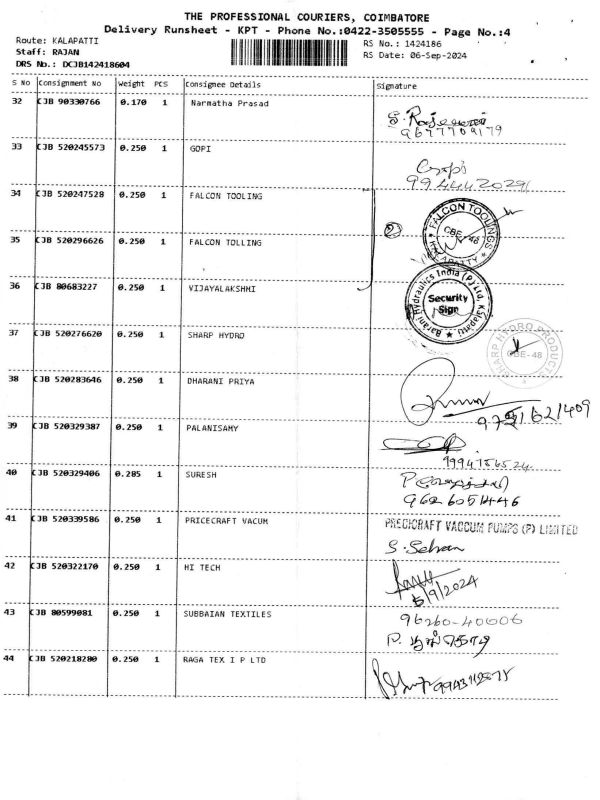 THE PROFESSIONAL COURIERS, COIMBATORE
Delivery Runsheet - KPT - Phone No.:0422-3505555 - Page No.:4
Route: KALAPATTI
Staff: RAJAN
DRS No.: DCJB142418604
RS No.: 1424186
RS Date: 06-Sep-2024
S No Consignment No Weight PCS Consignee Details Signature
32 CJB 90330766 0.170 1 Narmatha Prasad
9677709179
33 CJB 520245573 0.250 1 GOPI
Gopi
9944420291
34 CJB 520247528 0.250 1 FALCON TOOLING
FALCON TOOLINGS
CBE-48
KALAPATTY
35 CJB 520296626 0.250 1 FALCON TOLLING
36 CJB 80683227 0.250 1 VIJAYALAKSHMI
Hydraulics India (P) Ltd, Kalapatti
Security
Sign
37 CJB 520276620 0.250 1 SHARP HYDRO
SHARP HYDRO PRODUCTS
CBE-48
38 CJB 520283646 0.250 1 DHARANI PRIYA
39 CJB 520329387 0.250 1 PALANISAMY
9994756524
40 CJB 520329406 0.285 1 SURESH
9626051446
41 CJB 520339586 0.250 1 PRICECRAFT VACUM
PRECICRAFT VACCUM PUMPS (P) LIMITED
S. Selvan
42 CJB 520322170 0.250 1 HI TECH
5/9/2024
43 CJB 80599081 0.250 1 SUBBAIAN TEXTILES
96260-40006
44 CJB 520218280 0.250 1 RAGA TEX I P LTD